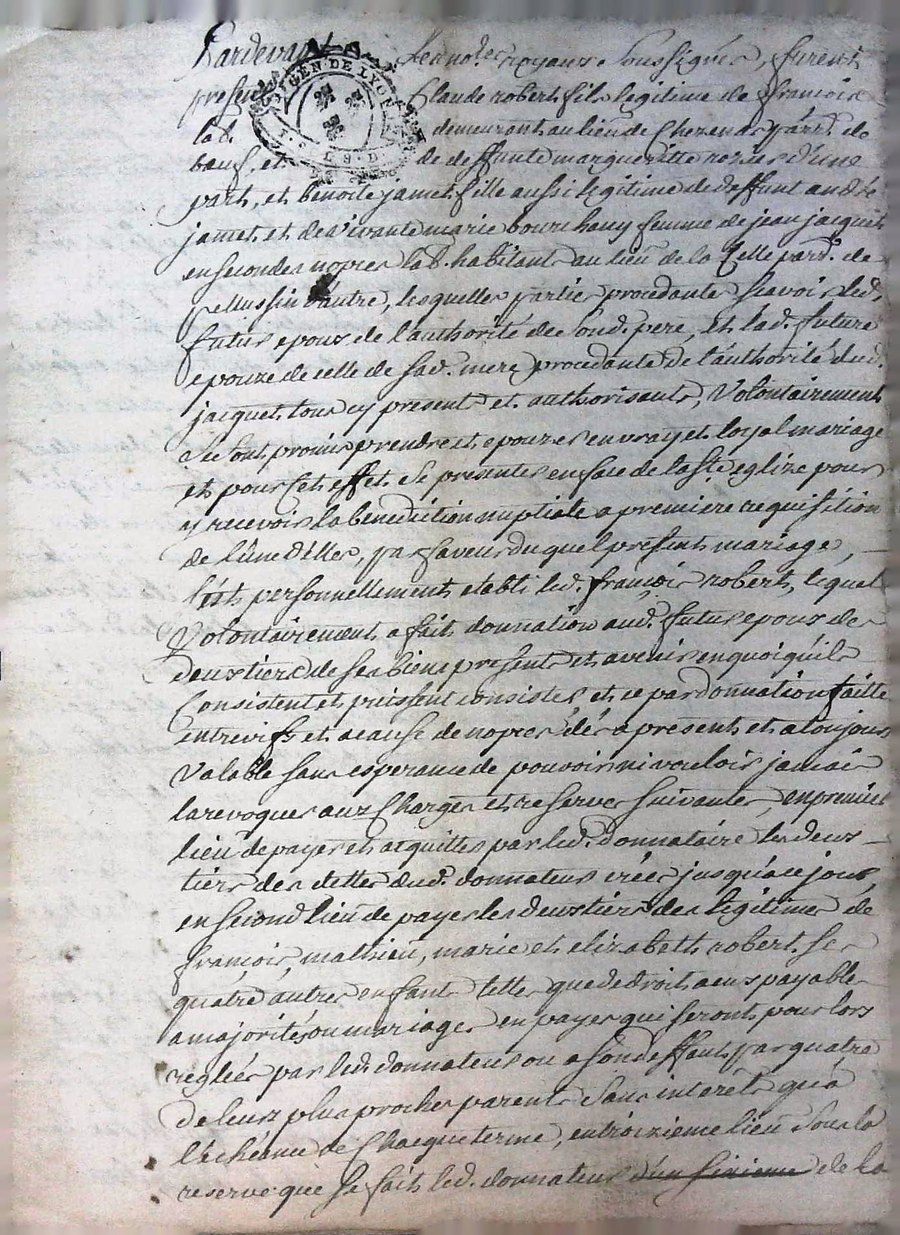 Pardevant les no.res royaux soussignés, furent
GEN DE LYON
presents Claude robert fils legitime de francois
lab. demeurant au lieu de Chezenas parr. de
beuf, et de deffunte margueritte rozier d'une
part, et benoite jamet fille aussi legitime de deffunt andré
jamet et de vivante marie bourchany femme de jean jacquet
en secondes nopces lab. habitant au lieu de la Celle parr. de
pellussin d'autre, lesquelles partie procedante sçavoir led.
futur epoux de l'authorité de sond. pere, et lad. future
epouze de celle de sad. mere procedante de l'authorité dud.
jacquet, tous cy present et authorisant, Volontairement
se sont promis prendre et epouzer en vray et loyal mariage
et pour cet effet se presenter en face de la s.te eglize pour
y recevoir la benediction nuptiale a premiere requisition
de l'une d'elles, par faveur du quel present mariage,
s'est personnellement etabli led. françois robert, lequel
Volontairement a fait donnation aud. futur epoux des
deux tiers de ses biens present et avenir en quoi qu'ils
Consistent et puissent consister, et ce par donnation faitte
entre vifs et a cause de nopces dés a present et a toujours
Valable sans esperance de pouvoir ni vouloir jamais
la revoquer aux Charges et reserves suivantes, en premier
lieu de payer et acquitter par led. donnataire les deux
tiers des dettes dud. donnateur créés jusqu'à ce jour,
en second lieu de payer les deux tiers des legitimes de
francois, mathieu, marie et elizabeth robert ses
quatre autres enfant telles que de droit a eux payable
a majorités ou mariages en payes qui seront pour lors
reglées par led. donnateur ou a son deffaut par quatre
de leurs plus proches parents sans interêts qu'à
l'echéance de Chacque terme, en troizieme lieu sous la
reserve que se fait led. donnateur d'un sixieme de la